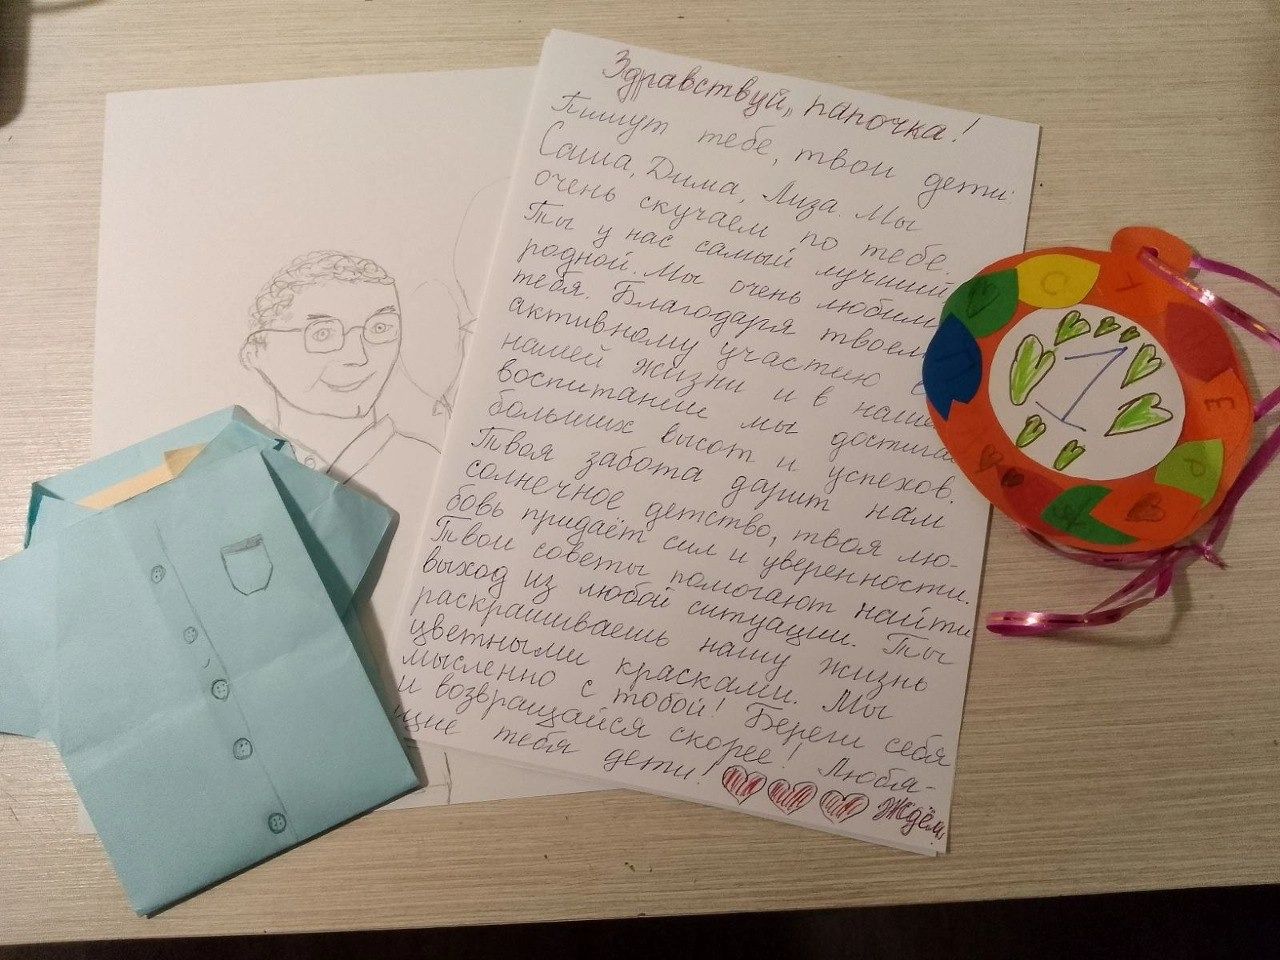 Здравствуй, папочка!
Пишут тебе, твои дети:
Саша, Дима, Лиза. Мы
очень скучаем по тебе.
Ты у нас самый лучший
родной. Мы очень любим
тебя. Благодаря твоем
активному участию в
нашей жизни и в наше
воспитании мы достига
больших высот и успехов.
Твоя забота дарит нам
солнечное детство, твоя лю-
бовь придаёт сил и уверенности.
Твои советы помогают найти
выход из любой ситуации. Ты
раскрашиваешь нашу жизнь
цветными красками. Мы
мысленно с тобой! Береги себя
и возвращайся скорее! Любя-
щие тебя дети! Ждём
1